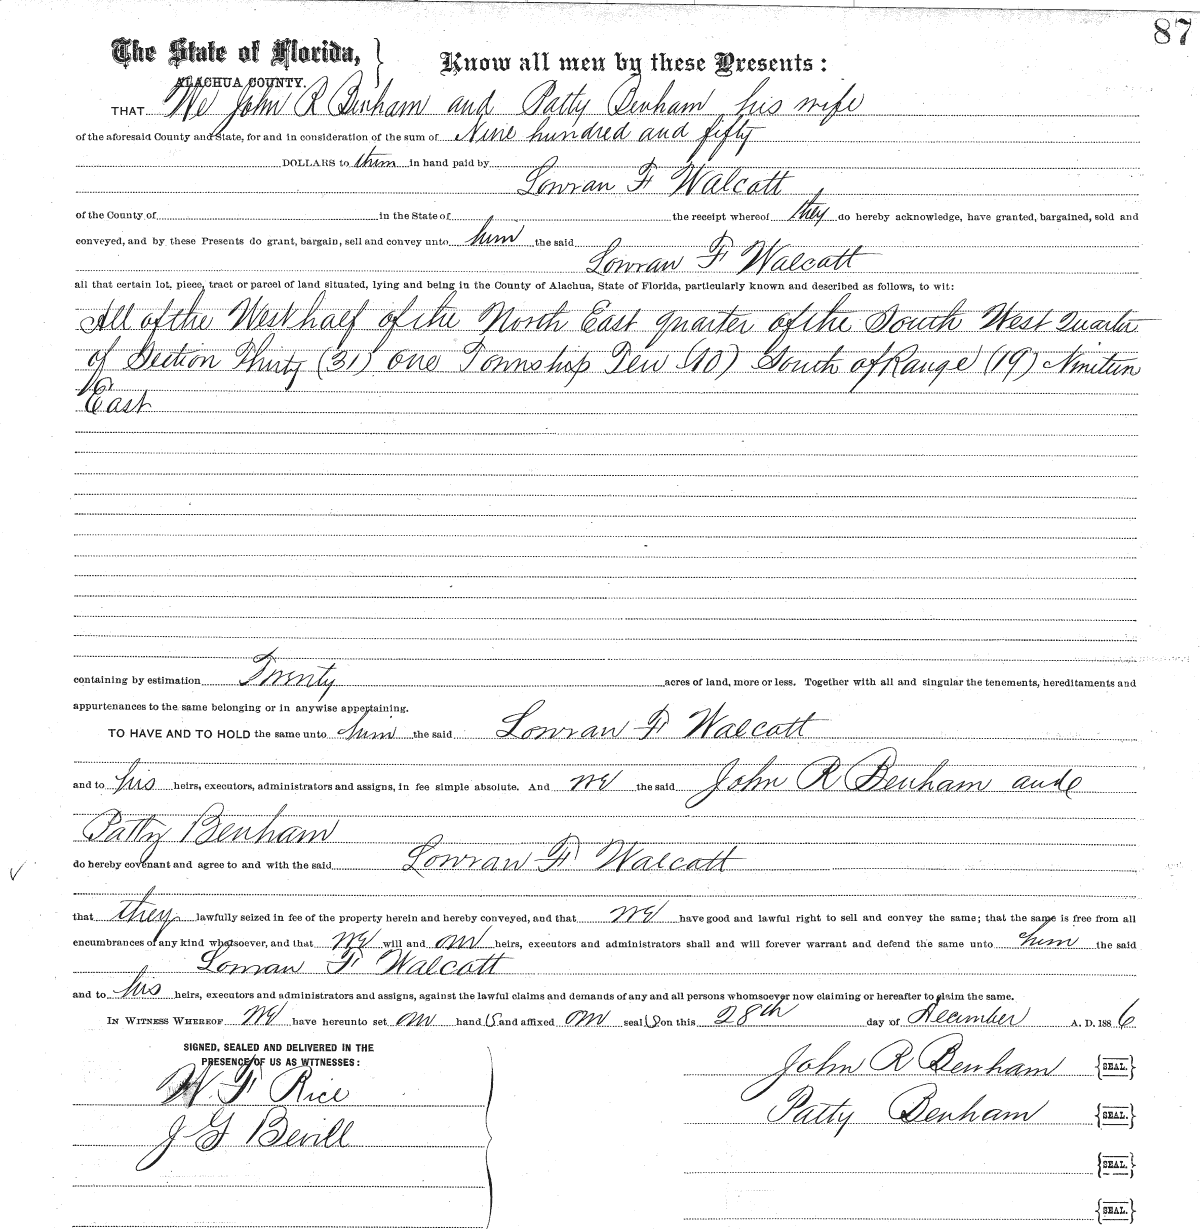 87
The State of Florida,
ALACHUA COUNTY.
Know all men by these Presents:
THAT We John R Benham and Patty Benham his wife
of the aforesaid County and State, for and in consideration of the sum of Nine hundred and fifty
DOLLARS to them in hand paid by
Lowran F Walcott
of the County of in the State of the receipt whereof they do hereby acknowledge, have granted, bargained, sold and
conveyed, and by these Presents do grant, bargain, sell and convey unto him the said
Lowran F Walcott
all that certain lot, piece, tract or parcel of land situated, lying and being in the County of Alachua, State of Florida, particularly known and described as follows, to wit:
All of the West half of the North East quarter of the South West Quarter
of Section Thirty (31) one Township Ten (10) South of Range (19) Nineteen
East
containing by estimation Twenty acres of land, more or less. Together with all and singular the tenements, hereditaments and
appurtenances to the same belonging or in anywise appertaining.
TO HAVE AND TO HOLD the same unto him the said Lowran F Walcott
and to his heirs, executors, administrators and assigns, in fee simple absolute. And we the said John R Benham and
Patty Benham
do hereby covenant and agree to and with the said Lowran F Walcott
that they lawfully seized in fee of the property herein and hereby conveyed, and that we have good and lawful right to sell and convey the same; that the same is free from all
encumbrances of any kind whatsoever, and that we will and our heirs, executors and administrators shall and will forever warrant and defend the same unto him the said
Lowran F Walcott
and to his heirs, executors and administrators and assigns, against the lawful claims and demands of any and all persons whomsoever now claiming or hereafter to claim the same.
IN WITNESS WHEREOF we have hereunto set our hand s and affixed our seal s on this 28th day of December A. D. 1886
SIGNED, SEALED AND DELIVERED IN THE
PRESENCE OF US AS WITNESSES:
W. F. Rice
J G Bevill
John R Benham {SEAL.}
Patty Benham {SEAL.}
{SEAL.}
{SEAL.}